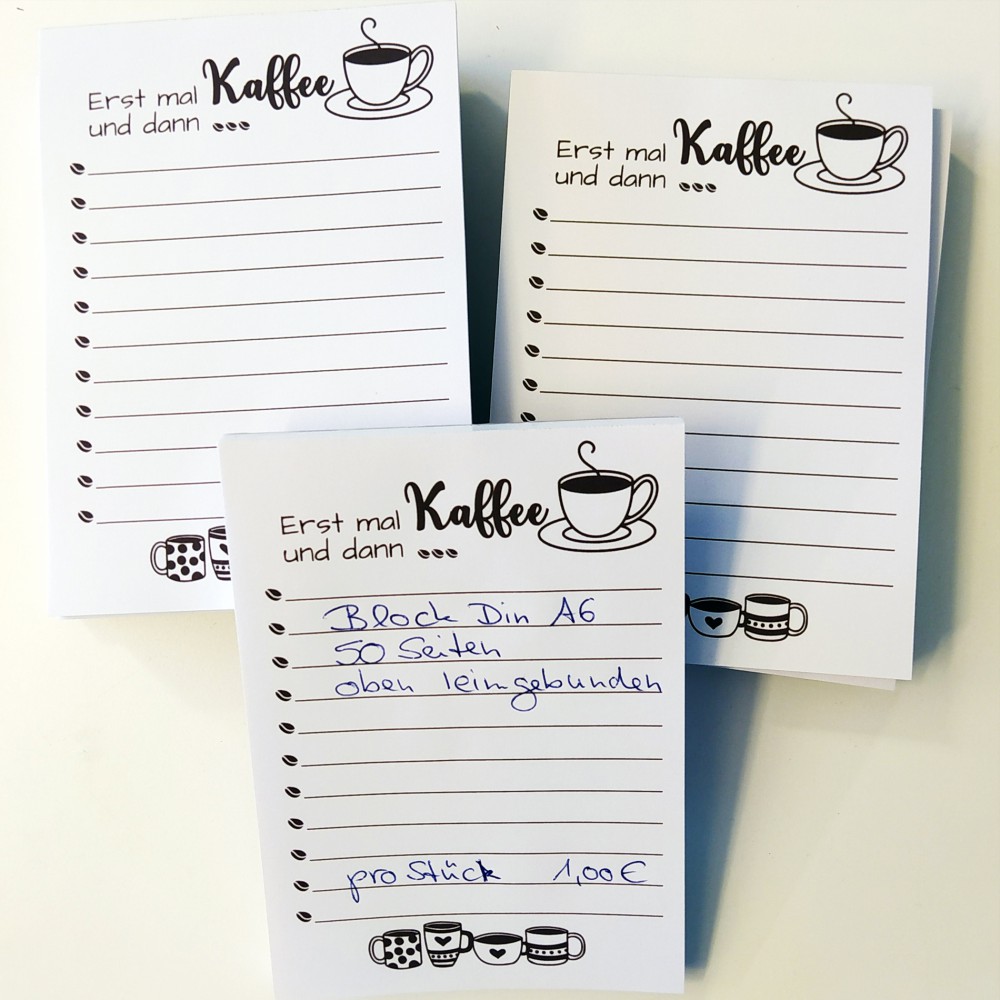 Erst mal Kaffee
und dann
Erst mal Kaffee
und dann
Erst mal Kaffee
und dann
Block Din A6
50 Seiten
oben leimgebunden
pro Stück 1,00€